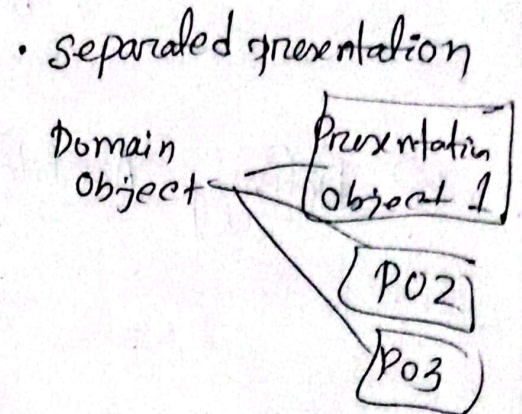 • separated presentation
Domain
Object
Presentatin
Object 1
PO2
PO3